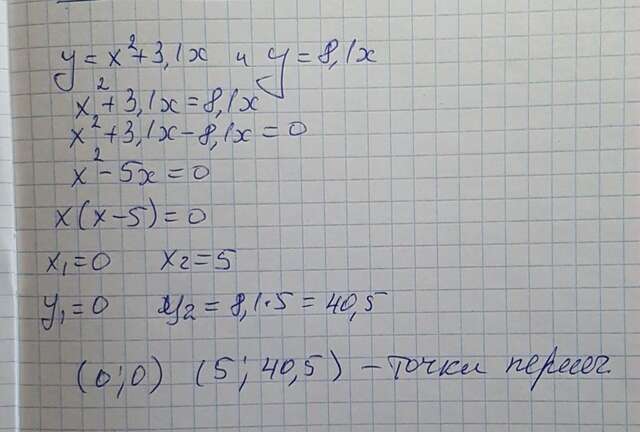 y = x² + 3,1x и y = 8,1x
x² + 3,1x = 8,1x
x² + 3,1x - 8,1x = 0
x² - 5x = 0
x(x - 5) = 0
x₁ = 0 x₂ = 5
y₁ = 0 y₂ = 8,1·5 = 40,5
(0; 0) (5; 40,5) - точки пересеч.